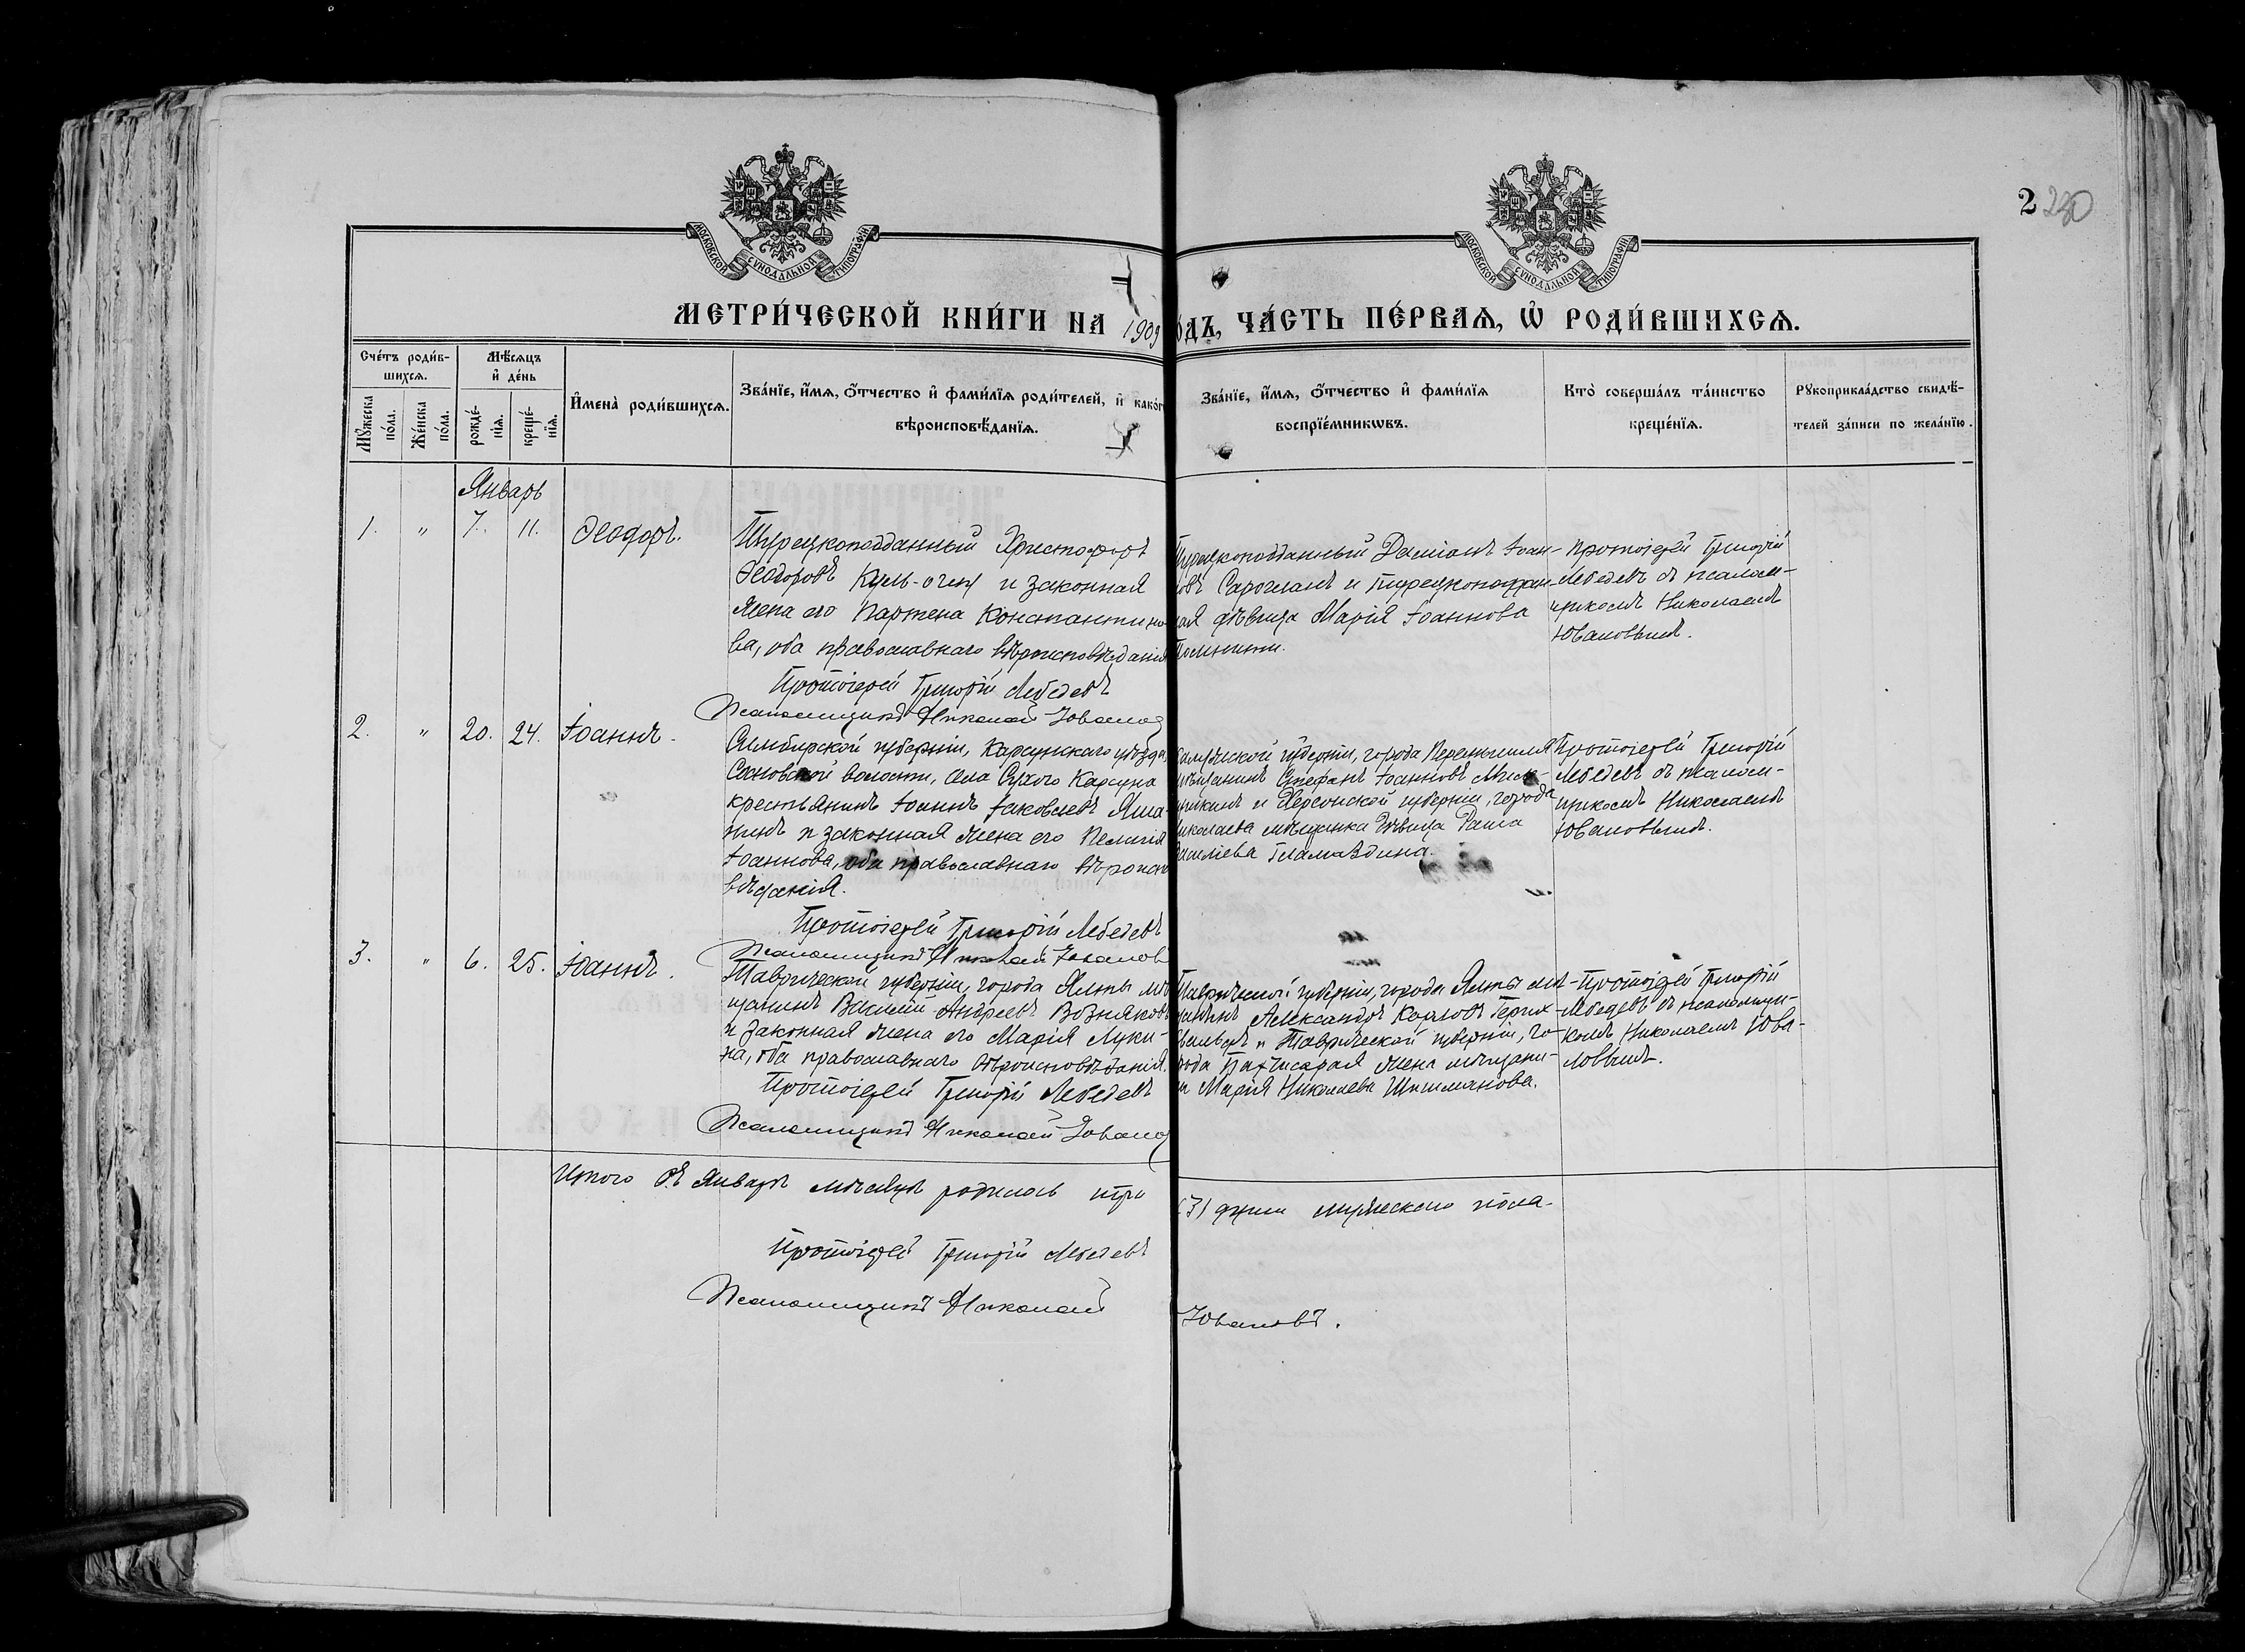 2 230
МОСКОВСКОЙ СѴНОДАЛЬНОЙ ТИПОГРАФІИ
МОСКОВСКОЙ СѴНОДАЛЬНОЙ ТИПОГРАФІИ
МЕТРИ́ЧЕСКОЙ КНИ́ГИ НА 1909
о́дъ, ЧА́СТЬ ПЕ́РВАѦ, Ѡ҆ РОДИ́ВШИХСѦ.
Сче́тъ роди́в-
шихсѧ.
Мѹ́жеска по́ла.
Же́нска по́ла.
Мѣ́сѧцъ
и҆ де́нь
рожде́-
нїѧ.
креще́-
нїѧ.
И҆мена̀ роди́вшихсѧ.
Зва́нїе, и҆́мѧ, ѻ҆́тчество и҆ фами́лїѧ роди́телей, и҆ како́г
вѣроисповѣ́данїѧ.
Зва́нїе, и҆́мѧ, ѻ҆́тчество и҆ фами́лїѧ
воспрїе́мникѡвъ.
Кто̀ соверша́лъ та́инство
креще́нїѧ.
Рѹкоприкла́дство свидѣ́-
телей за́писи по жела́нїю.
Январь
1. " 7. 11. Ѳеодоръ.
Турецкоподданный Христофоръ
Ѳеодоровъ Куль-оглу и законная
жена его Партена Константино-
ва, оба православнаго вѣроисповѣданія
Турецкоподданный Даміанъ Іоан-
новъ и Турецкоподдан-
ная дѣвица Марія Іоаннова
Протоіерей Григорій
Лебедевъ съ псалом-
щикомъ Николаемъ
Юваловымъ.
Протоіерей Григорій Лебедевъ
Псаломщикъ Николай Ювалов
2. " 20. 24. Іоаннъ.
Симбирской губерніи, Карсунскаго уѣзда,
Сосновской волости, села Сухого Карсуна
крестьянинъ Іоаннъ Іаковлевъ Яша-
нинъ и законная жена его Пелагія
Іоаннова, оба православнаго вѣроиспо
вѣданія.
Калужской губерніи, города Перемышля
мѣщанинъ Стефанъ Іоанновъ
и Херсонской губерніи, города
Николаева мѣщанка дѣвица Раиса
Василіева Гламаздина.
Протоіерей Григорій
Лебедевъ съ псалом-
щикомъ Николаемъ
Юваловымъ.
Протоіерей Григорій Лебедевъ
Псаломщикъ Николай Ювалов
3. " 6. 25. Іоаннъ.
Таврической губерніи, города Ялты мѣ-
щанинъ Василій Андреевъ Возняковъ
и законная жена его Марія Луки-
на, оба православнаго вѣроисповѣданія.
Таврической губерніи, города Ялты мѣ-
щанинъ Александръ Карловъ
и Таврической губерніи, го-
рода Бахчисарая жена мѣщани-
на Марія Николаева Шишманова.
Протоіерей Григорій
Лебедевъ съ псаломщи-
комъ Николаемъ Юва-
ловымъ.
Протоіерей Григорій Лебедевъ
Псаломщикъ Николай Ювалов
Итого въ Январѣ мѣсяцѣ родилось три
(3) души мужескаго пола.
Протоіерей Григорій Лебедевъ
Псаломщикъ Николай
Юваловъ.